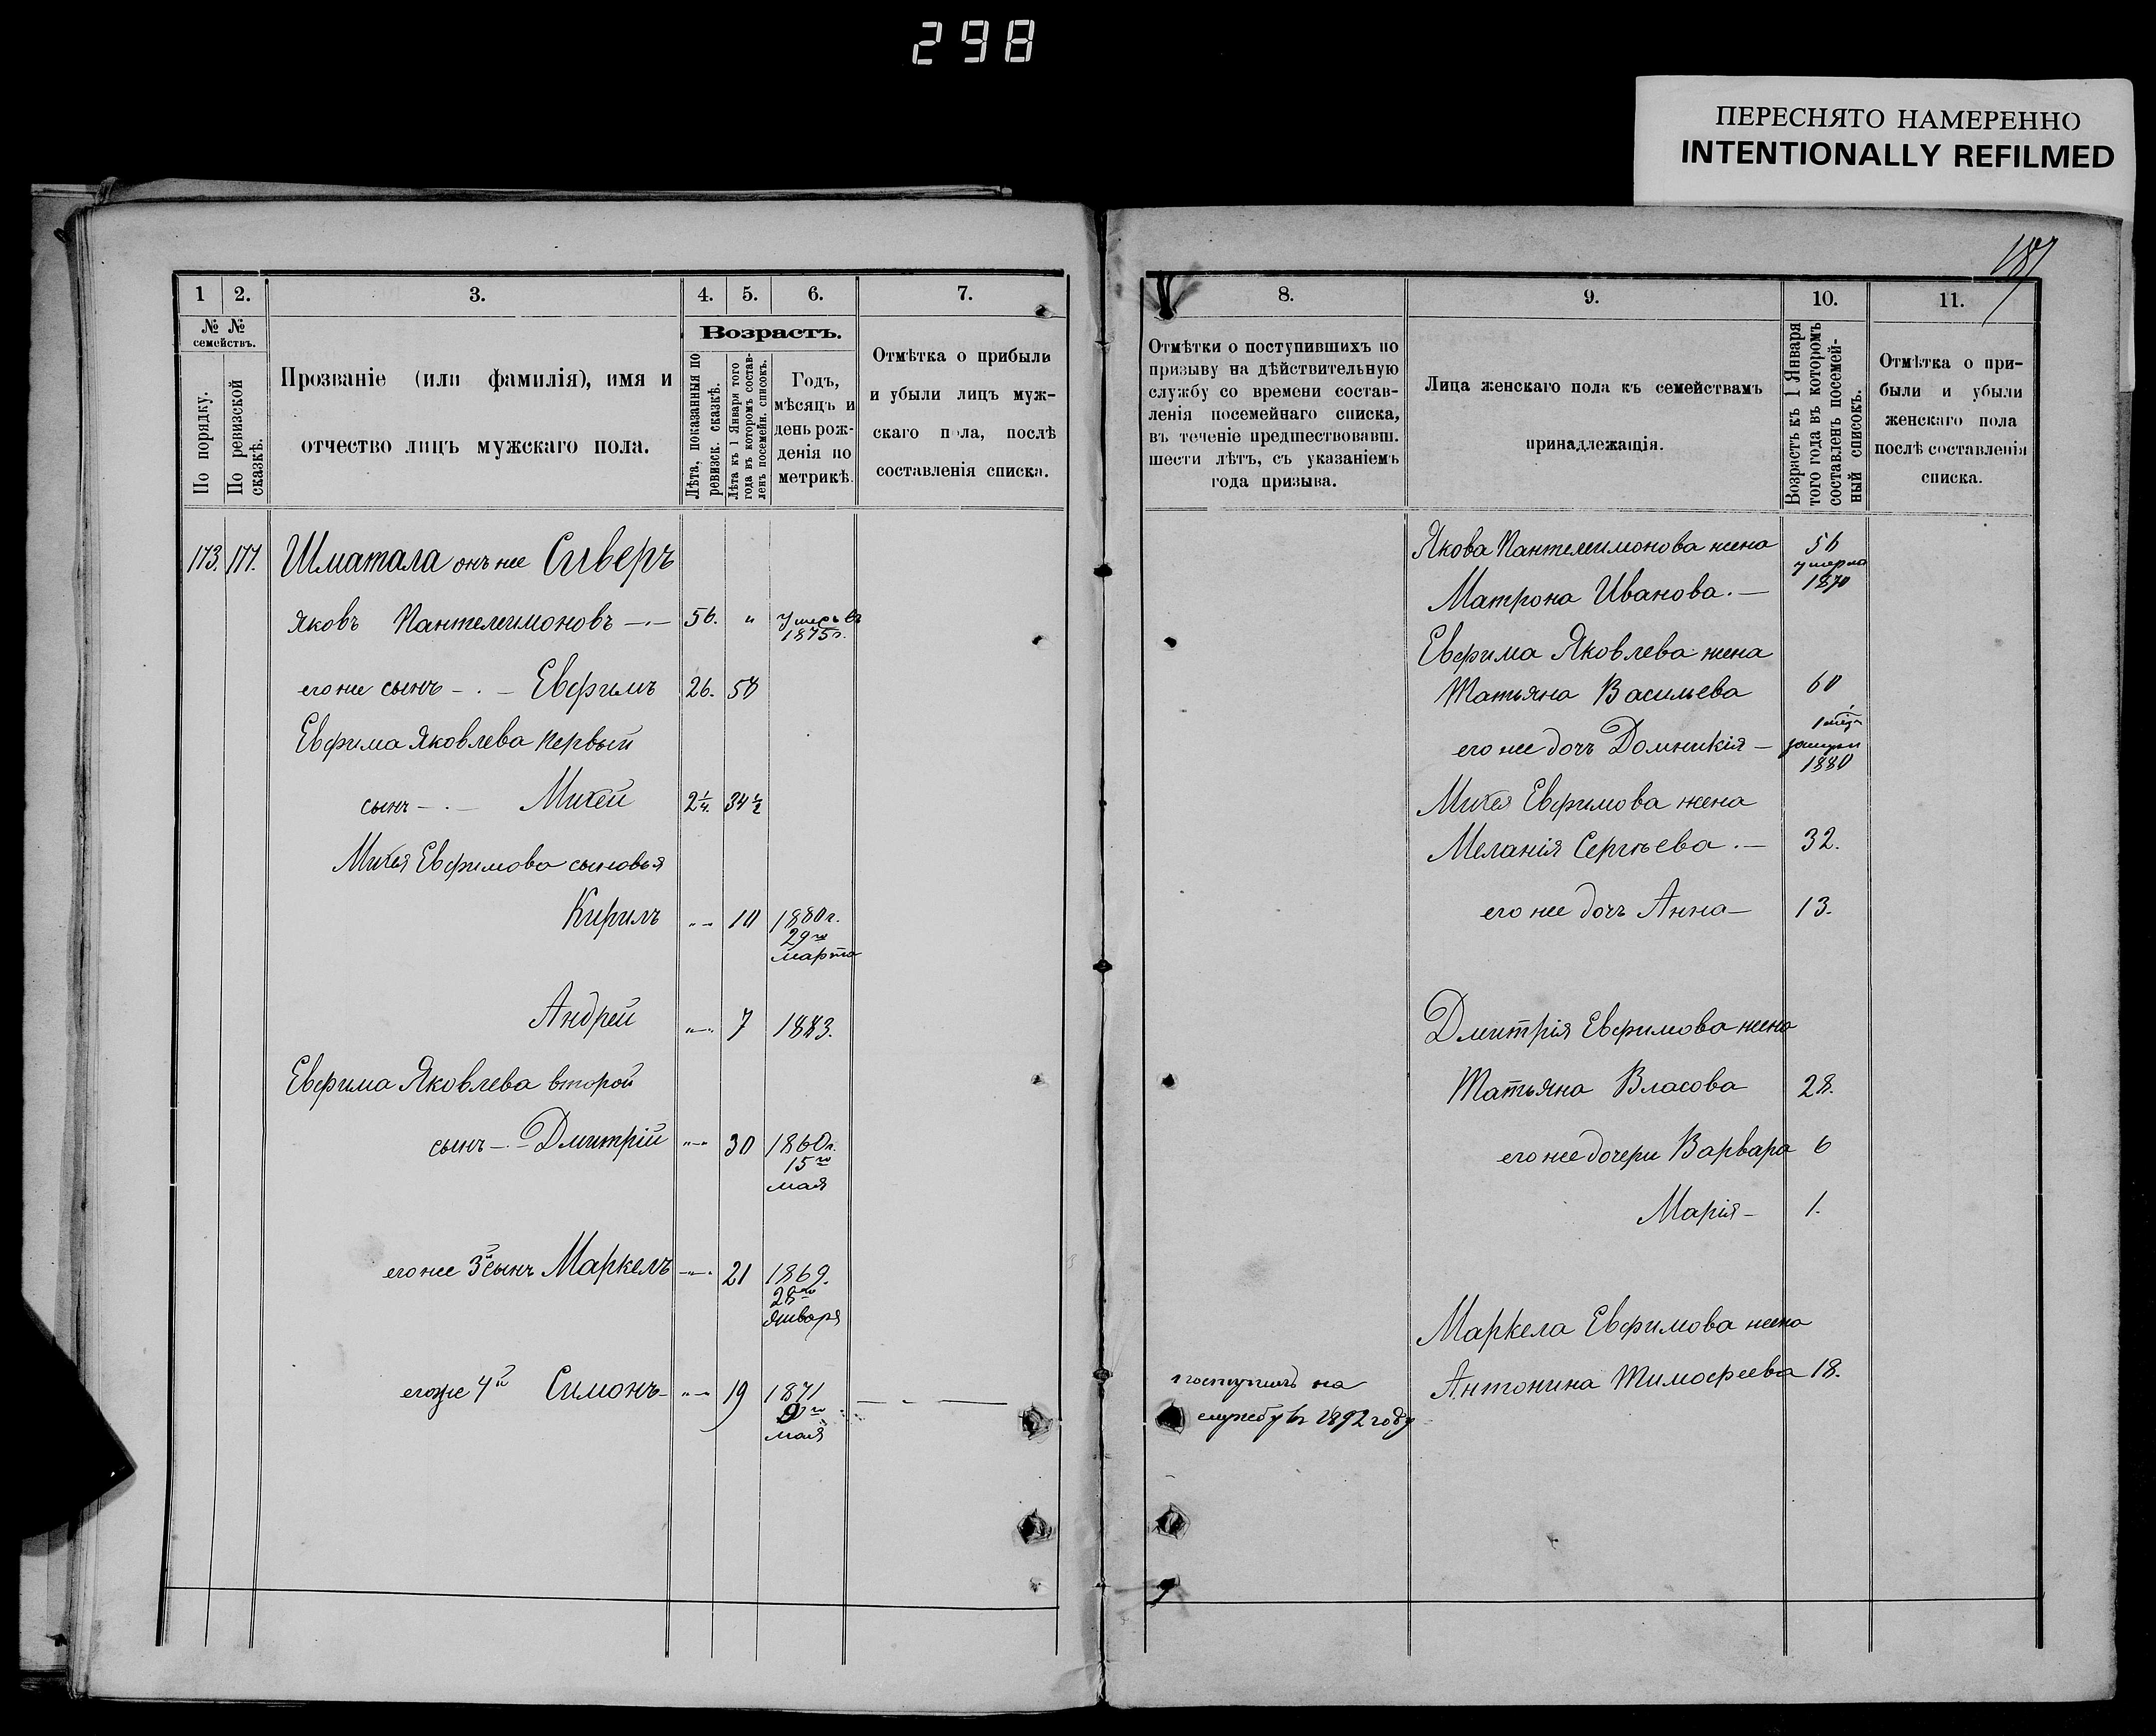 298
ПЕРЕСНЯТО НАМЕРЕННО
INTENTIONALLY REFILMED
187
1 2. 3. 4. 5. 6. 7.
№ № семействъ.
По порядку.
По ревизской сказкѣ.
Прозваніе (или фамилія), имя и
отчество лицъ мужскаго пола.
Возрастъ.
Лѣта, показанныя по ревизск. сказкѣ.
Лѣта къ 1 Января того года въ которомъ составленъ посемейн. списокъ.
Годъ,
мѣсяцъ и
день рож-
денія по
метрикѣ.
Отмѣтка о прибыли
и убыли лицъ муж-
скаго пола, послѣ
составленія списка.
173. 177. Шматала онъ же Сиверъ
Яковъ Пантелеимоновъ —.— 56. " Умеръ въ
1875 г.
его же сынъ —.— Евфимъ 26. 58
Евфима Яковлева первый
сынъ —.— Михей 2¼. 34½
Михея Евфимова сыновья
Кирилъ "—" 10 1880 г.
29го
марта
Андрей "—" 7 1883.
Евфима Яковлева второй
сынъ —.— Дмитрій "—" 30 1860 г.
15го
мая
его же 3й сынъ Маркелъ "—" 21 1869.
28го
января
его же 4й Симонъ "—" 19 1871
9го
мая
8. 9. 10. 11.
Отмѣтки о поступившихъ по
призыву на дѣйствительную
службу со времени состав-
ленія посемейнаго списка,
въ теченіе предшествовавш.
шести лѣтъ, съ указаніемъ
года призыва.
Лица женскаго пола къ семействамъ
принадлежащія.
Возрастъ къ 1 Января
того года въ которомъ
составленъ посемей-
ный списокъ.
Отмѣтка о при-
были и убыли
женскаго пола
послѣ составленія
списка.
Якова Пантелеимонова жена 56
умерла
Матрона Иванова.— 1870
Евфима Яковлева жена
Татьяна Васильева 60
его же дочь Домникія —
1880
Михея Евфимова жена
Меланія Сергѣева.— 32.
его же дочь Анна — 13.
Дмитрія Евфимова жена
Татьяна Власова 28.
его же дочери Варвара 6
Марія — 1.
Маркела Евфимова жена
Антонина Тимофеева 18.
поступилъ на
службу въ 1892 году